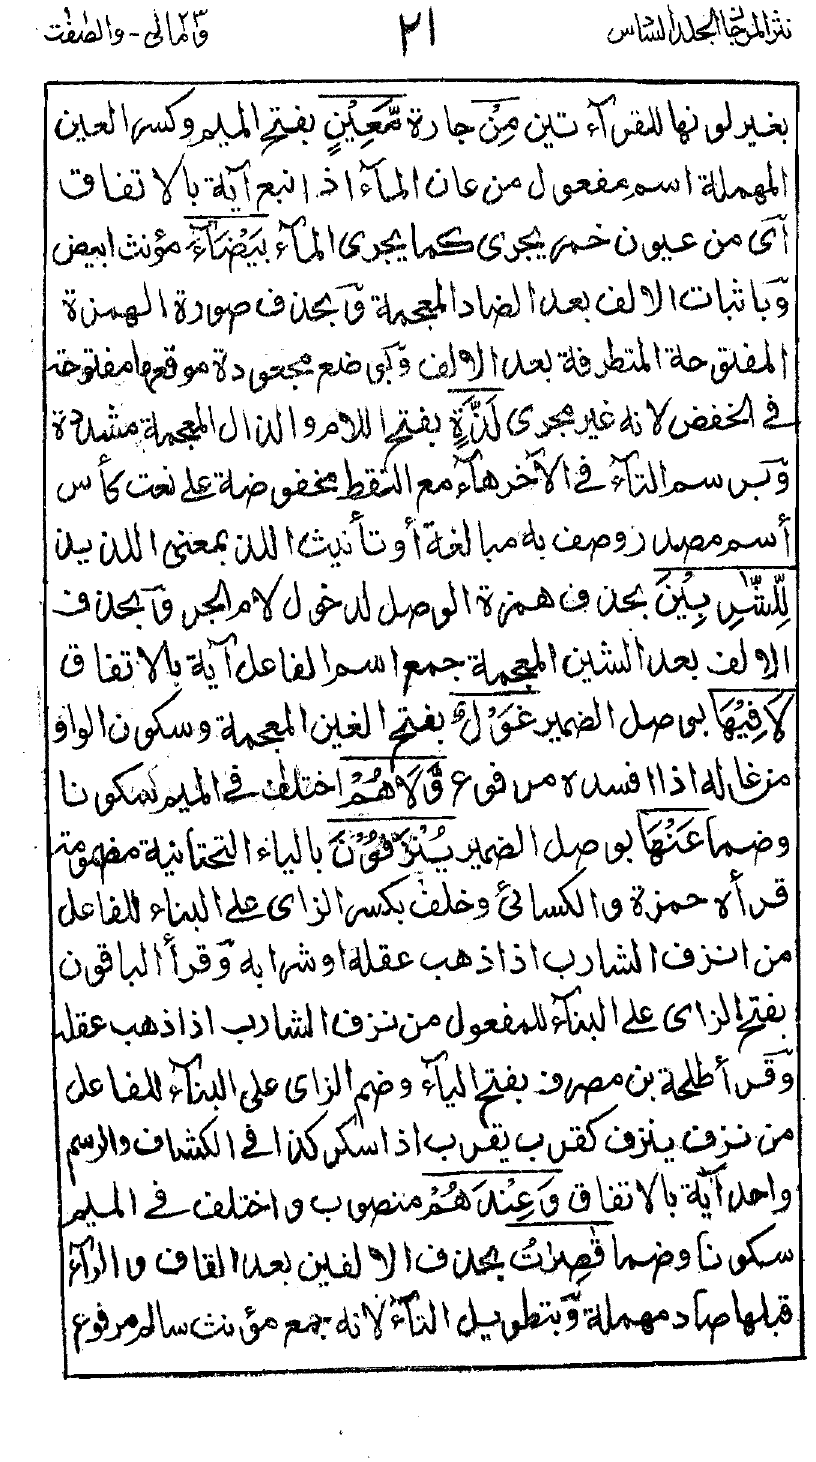 نثر المرجان المجلد السادس ٢١ ومالى - والصّٰفّٰت
بغير لونها للقرآءتين مِنْ جارة مَّعِيْنٍ بفتح الميم وكسر العين
المهملة اسم مفعول من عان المآء اذا نبع آية بالاتفاق
أى من عيون خمر يجرى كما يجرى المآء بَيْضَآءَ مؤنث ابيض
وباثبات الالف بعد الضاد المعجمة وبحذف صورة الهمزة
المفتوحة المتطرفة بعد الالف وبوضع مجعودة موقعها مفتوحة
فى الخفض لانه غير مجرى لَذَّةٍ بفتح اللام والذال المعجمة مشددة
وبرسم التآء فى الآخر هآء مع النقط مخفوضة على نعت كأس
أسم مصدر وصف به مبالغة أو تأنيث اللذ بمعنى اللذيذ
لِّلشّٰرِبِيْنَ بحذف همزة الوصل لدخول لام الجر وبحذف
الالف بعد الشين المعجمة جمع اسم الفاعل آية بالاتفاق
لَا فِيْهَا بوصل الضمير غَوْلٌ بفتح الغين المعجمة وسكون الواو
من غاله اذا افسده مرفوع وَّلَا هُمْ اختلف فى الميم سكونا
وضما عَنْهَا بوصل الضمير يُنْزَفُوْنَ بالياء التحتانية مضمومة
قرأه حمزة والكسائى وخلف بكسر الزاى على البناء للفاعل
من انزف الشارب اذا ذهب عقله او شرابه وقرأ الباقون
بفتح الزاى على البنآء للمفعول من نزف الشارب اذا ذهب عقله
وقرأ طلحة بن مصرف بفتح اليآء وضم الزاى على البنآء للفاعل
من نزف ينزف كقرب يقرب اذا سكر كذا فى الكشاف والرسم
واحد آية بالاتفاق وَعِنْدَهُمْ منصوب واختلف فى الميم
سكونا وضما قٰصِرٰتُ بحذف الالفين بعد القاف والرآء
قبلها صاد مهملة وبتطويل التآء لانه جمع مؤنث سالم مرفوع